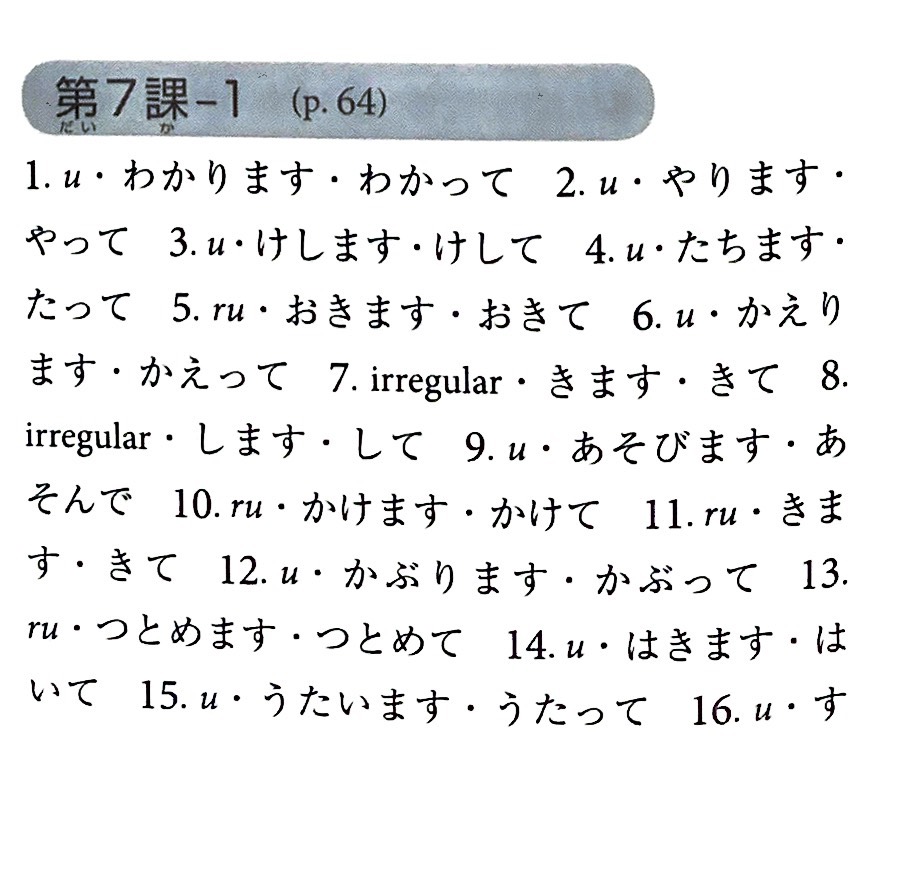 第7課-1 (p. 64)
だい か
1. u・わかります・わかって 2. u・やります・
やって 3. u・けします・けして 4. u・たちます・
たって 5. ru・おきます・おきて 6. u・かえり
ます・かえって 7. irregular・きます・きて 8.
irregular・します・して 9. u・あそびます・あ
そんで 10. ru・かけます・かけて 11. ru・きま
す・きて 12. u・かぶります・かぶって 13.
ru・つとめます・つとめて 14. u・はきます・は
いて 15. u・うたいます・うたって 16. u・す